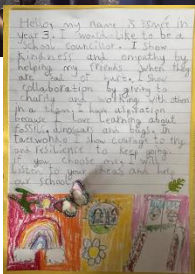 Hello, my name is
year 3. I would like to be a
School Councillor. I show
kindness and empathy by
helping my friends when they
are sad or hurt. I show
collaboration by giving to
charity and working with others
in a team. I have aspiration
because I love learning about
fossils, dinosaurs and bugs. In
I show courage
and resilience I keep going.
If you choose me, I will
listen to your ideas and help
our school